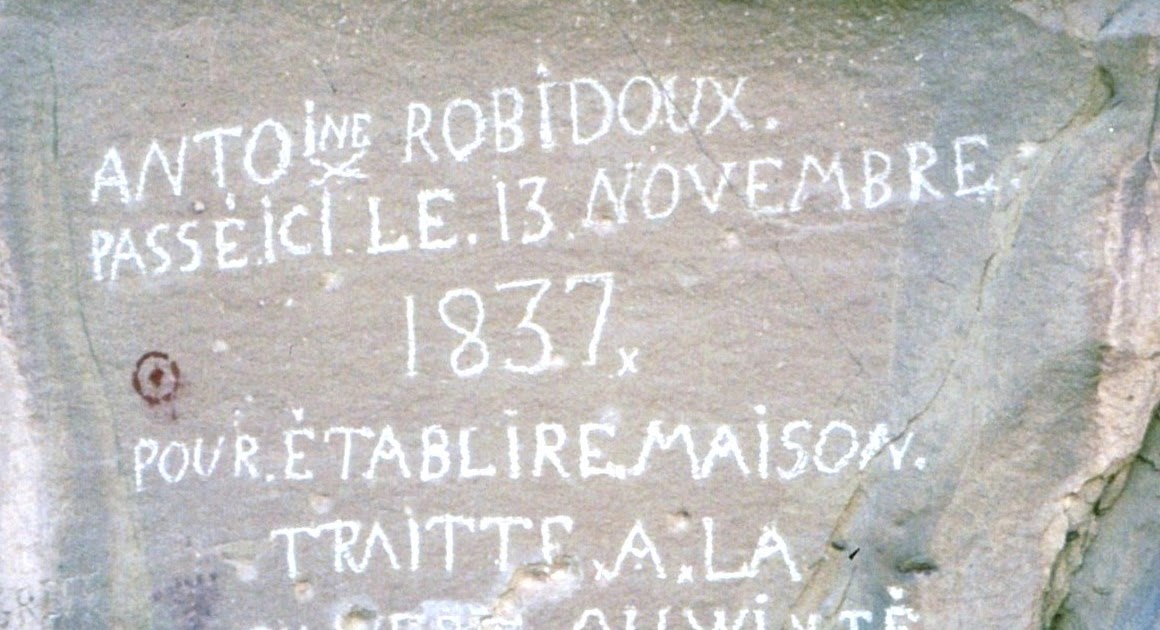 ANTOiNE ROBiDOUX.
PASSÉ.iCi.LE.13.NOVEMBRE.
1837.
POUR.ÉTABLiRE.MAiSON.
TRAiTTE.A.LA